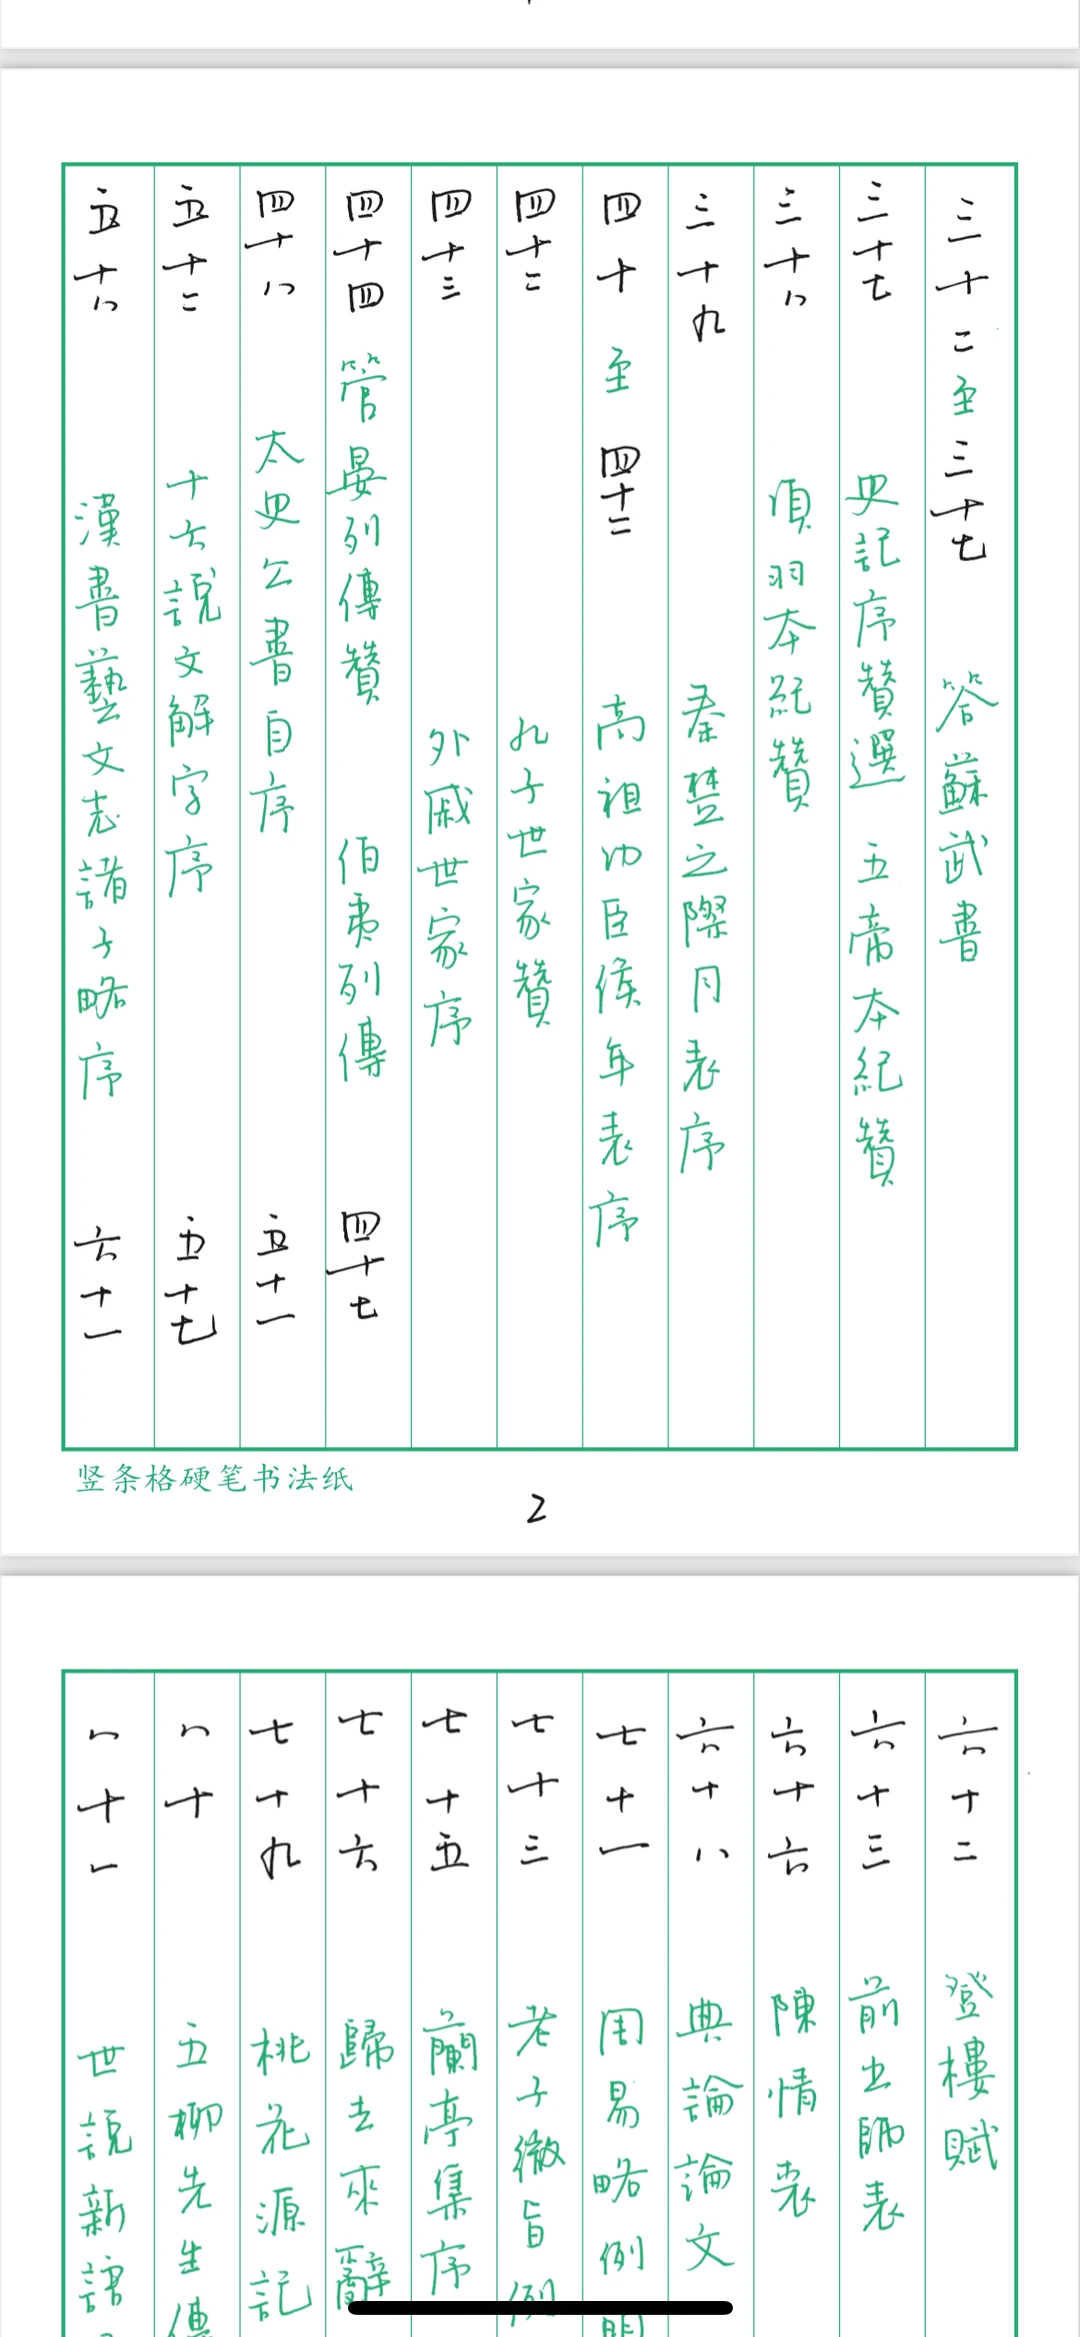 三十二至三十七 答蘇武書
三十七 史記序贊選 五帝本紀贊
三十八 項羽本紀贊
三十九 秦楚之際月表序
四十至四十二 高祖功臣侯年表序
四十二 孔子世家贊
四十三 外戚世家序
四十四 管晏列傳贊 伯夷列傳 四十七
四十八 太史公書自序 五十一
五十二 十六說文解字序 五十七
五十八 漢書藝文志諸子略序 六十一
竖条格硬笔书法纸
2
六十二 登樓賦
六十三 前出師表
六十六 陳情表
六十八 典論論文
七十一 周易略例明
七十三 老子微旨例
七十五 蘭亭集序
七十六 歸去來辭
七十九 桃花源記
八十 五柳先生傳
八十一 世說新語